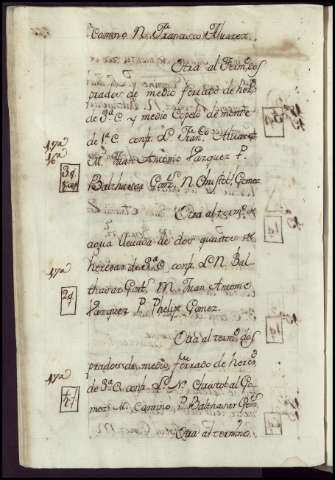 Camino N. Francisco Alvarez
Otra al Termº dos
prados de medio ferrado de her.
de 3ª C y medio Copelo de monte
de 1ª C. conf. L. Franco Alvarez
M. Juan Antonio Vazquez P.
Balthasar Gonz. N. Christol. Gomez
Otra al termº de
agua llevada de dos quartos de
heredad de 3ª C. conf. L. N. Bal
thasar Gonz. M. Juan Antonio
Vazquez P. Phelipe Gomez.
Otra al termº dos
prados de medio ferrado de her.
de 3ª C. conf. L. N. Christobal Go
mez M. Camino P. Balthasar Gonz.
Otra al termino
17ª
16ª
3q.
17ª
2q.
17ª